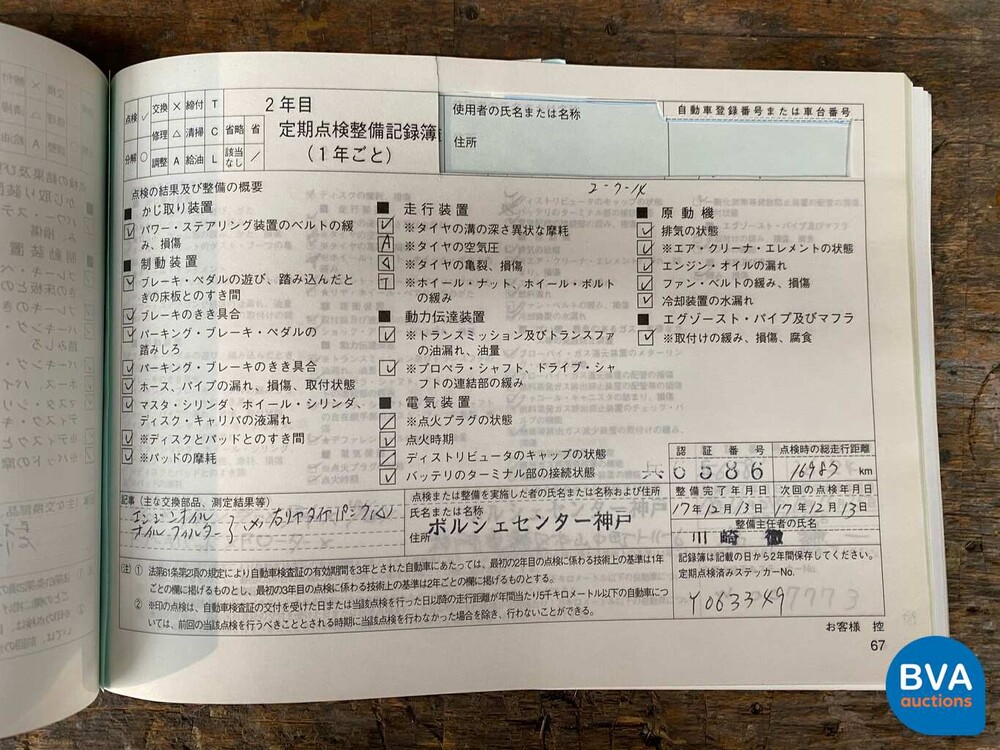 点検 ✓ 交換 × 締付 T
修理 △ 清掃 C 省略 省
分解 ○ 調整 A 給油 L 該当なし /
2年目
定期点検整備記録簿
(1年ごと)
使用者の氏名または名称
住所
自動車登録番号または車台番号
点検の結果及び整備の概要
■ かじ取り装置
✓ パワー・ステアリング装置のベルトの緩
み、損傷
■ 制動装置
✓ ブレーキ・ペダルの遊び、踏み込んだと
きの床板とのすき間
✓ ブレーキのきき具合
✓ パーキング・ブレーキ・ペダルの
踏みしろ
✓ パーキング・ブレーキのきき具合
✓ ホース、パイプの漏れ、損傷、取付状態
✓ マスタ・シリンダ、ホイール・シリンダ、
ディスク・キャリパの液漏れ
✓ ※ディスクとパッドとのすき間
✓ ※パッドの摩耗
■ 走行装置
✓ ※タイヤの溝の深さ異状な摩耗
A ※タイヤの空気圧
※タイヤの亀裂、損傷
T ※ホイール・ナット、ホイール・ボルト
の緩み
■ 動力伝達装置
✓ ※トランスミッション及びトランスファ
の油漏れ、油量
✓ ※プロペラ・シャフト、ドライブ・シャ
フトの連結部の緩み
■ 電気装置
/ ※点火プラグの状態
✓ 点火時期
/ ディストリビュータのキャップの状態
✓ バッテリのターミナル部の接続状態
■ 原動機
✓ 排気の状態
✓ ※エア・クリーナ・エレメントの状態
✓ エンジン・オイルの漏れ
✓ ファン・ベルトの緩み、損傷
✓ 冷却装置の水漏れ
■ エグゾースト・パイプ及びマフラ
✓ ※取付けの緩み、損傷、腐食
認証番号
6586
点検時の総走行距離
16985 km
整備完了年月日
17年12月13日
次回の点検年月日
17年12月13日
整備主任者の氏名
川崎 徹
記事(主な交換部品、測定結果等)
エンジンオイル
オイルフィルター
点検または整備を実施した者の氏名または名称および住所
氏名または名称
ポルシェセンター神戸
住所
記録簿は記載の日から2年間保存してください。
定期点検済みステッカーNo.
Y063349
(注) ① 法第61条第2項の規定により自動車検査証の有効期間を3年とされた自動車にあたっては、最初の2年目の点検に係わる技術上の基準は1年
ごとの欄に掲げるものとし、最初の3年目の点検に係わる技術上の基準は2年ごとの欄に掲げるものとする。
② ※印の点検は、自動車検査証の交付を受けた日または当該点検を行った日以降の走行距離が年間当たり5千キロメートル以下の自動車につ
いては、前回の当該点検を行うべきこととされる時期に当該点検を行わなかった場合を除き、行わないことができる。
お客様 控
67
BVA
auctions